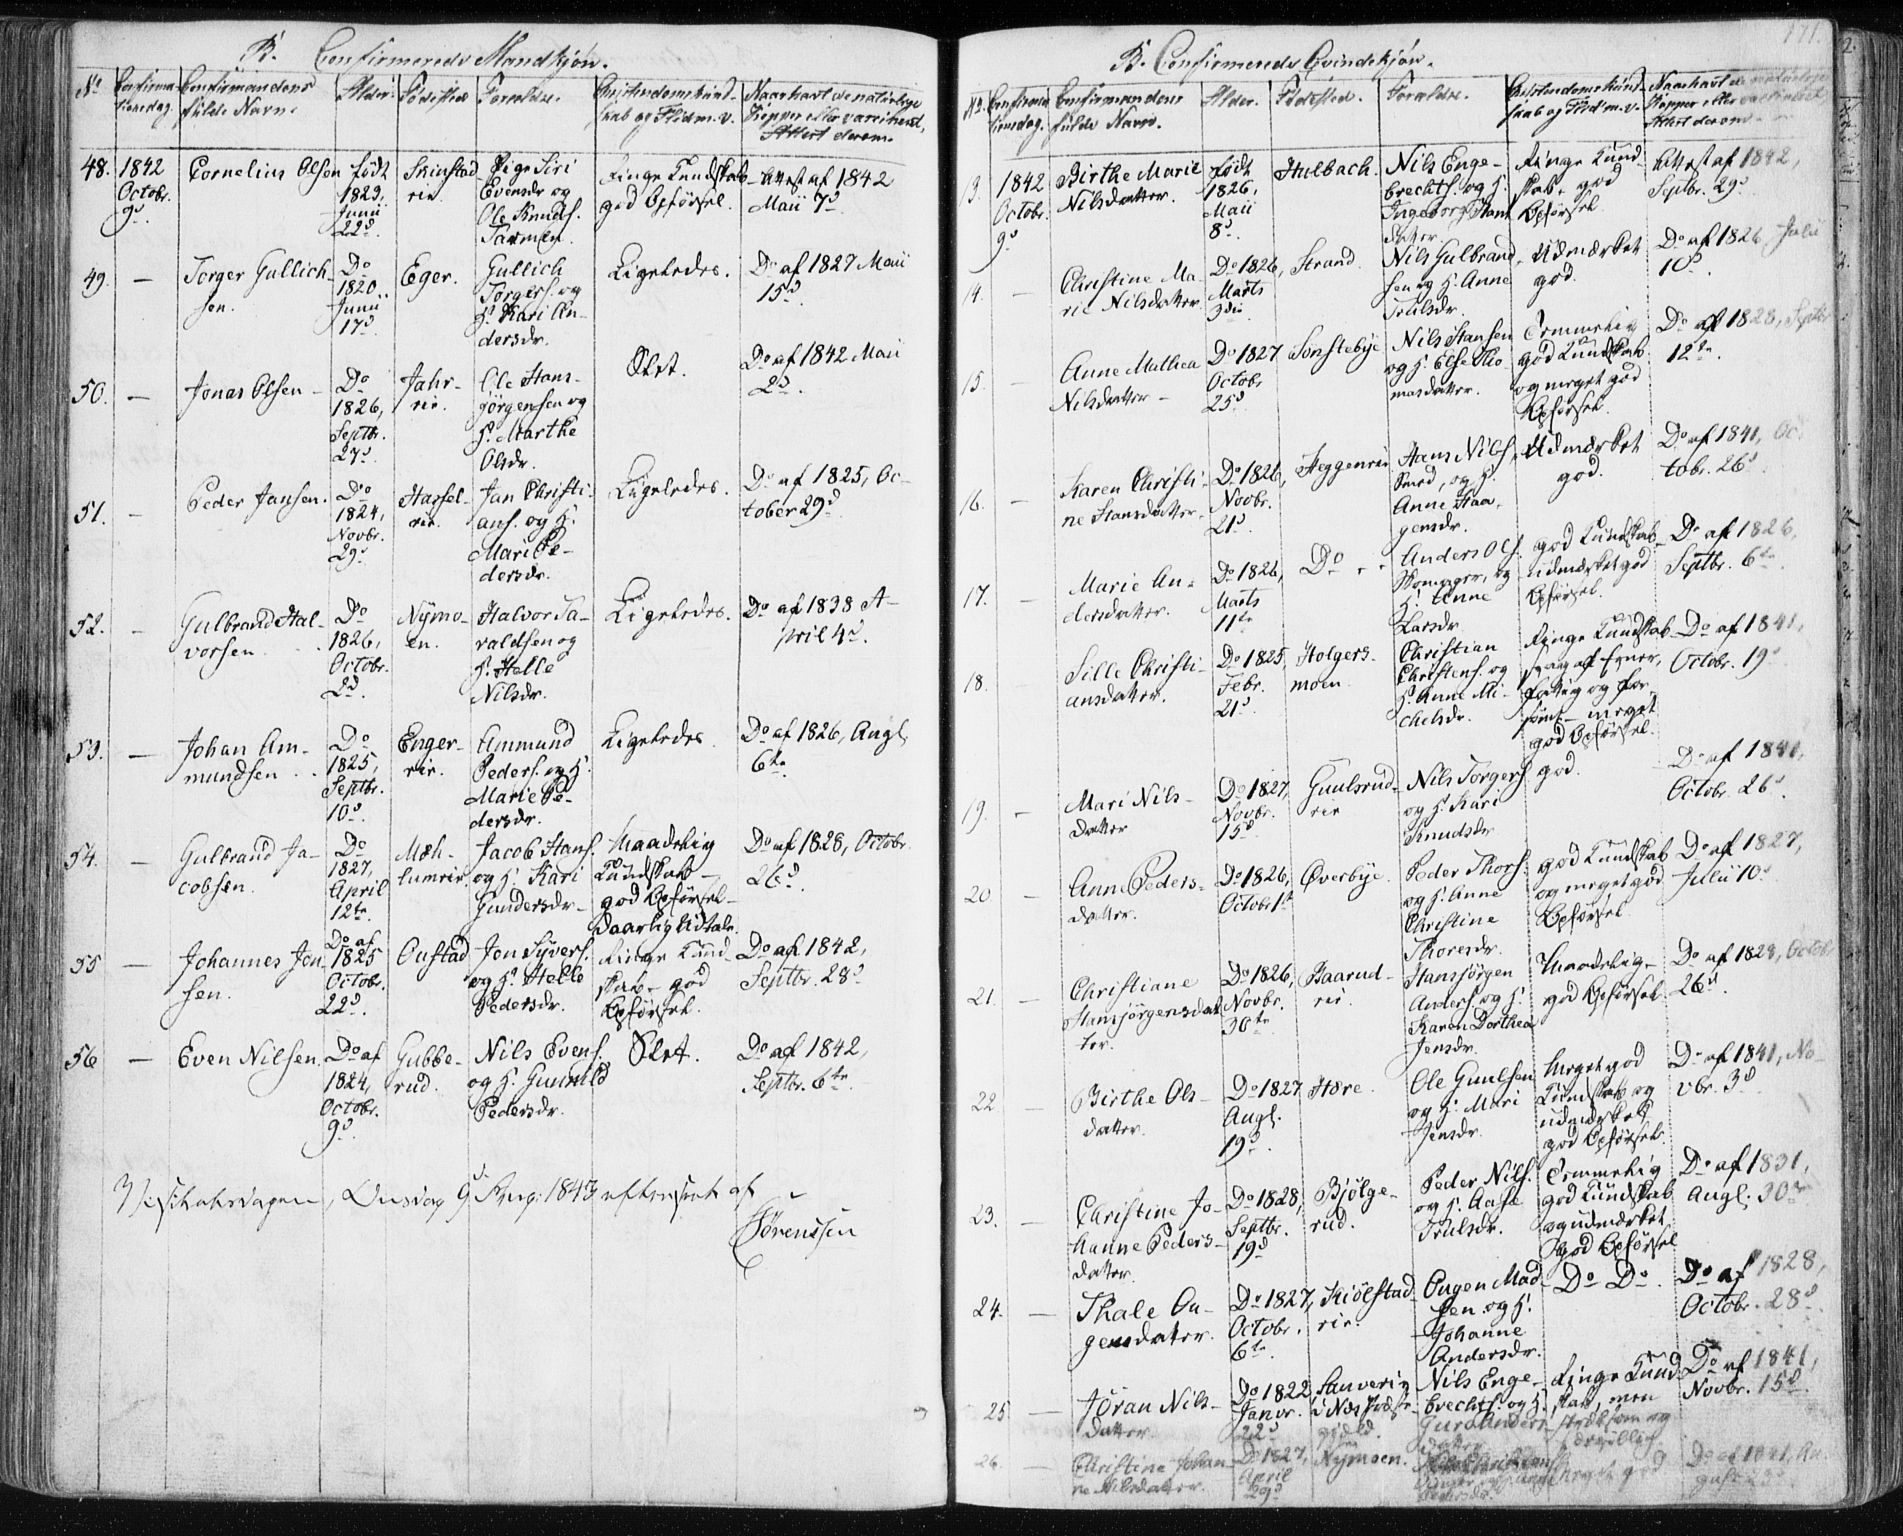 B. Confirmerede Mandkjøn.
No. Confirmationsdag. Confirmandens fulde Navn. Alder. Fødested. Forældre. Christendomskundskab og Flid m.v. Naar havt de naturlige Kopper eller vaccineret, Attest derom.
48. 1842 Octobr. 9d. Cornelius Olsen født 1823, Junii 22d. rie. Pige Siri Evensdr og Ole Knuds. Ringe Kundskab god Opførsel. Attest af 1842 Maii 7d
49. — Torger Gullichsen. Do 1820 Junii 17d Eger. Gullich Torgers. og H. Kari Andersdr. Ligeledes. Do af 1827 Maii 15d
50. — Jonas Olsen — Do 1826, Septbr. 27d. Jahrrie. Ole Hansjörgensen og H. Marthe Olsdr. Slet. Do af 1842 Maii 2d.
51. — Peder Jansen. Do 1824, Novbr. 29d Hasselrie. Jan Christians. og H. Mari Pedersdr. Ligeledes. Do af 1825, October 29d
52. — Gulbrand Halvorsen. Do 1826, Octobr. 2d. Nÿmoen. Halvor Tavaldsen og H. Helle Nilsdr. Ligeledes. Do af 1838 April 4d.
53. — Johan Ammundsen. Do 1825, Septbr. 10d. Engerrie. Ammund Peders. og H. Marie Pedersdr. Ligeledes. Do af 1826, Augl. 6te.
54. — Gulbrand Jacobsen. Do 1827, April 12te. Mæhlumrie. Jacob Hans. og H. Kari Gundersdr. Maadelig Kundskab — god Opførsel — daarlig Udtale. Do af 1828, Octobr. 26d.
55 — Johannes Jonsen. Do af 1825 Octobr. 22d. Oustad Jon Syvers. og H. Helle Pedersdr. Ringe Kundskab — god Opførsel. Do af 1842, Septbr. 28d
56 — Even Nilsen. Do af 1824, Octobr. 9d. Gubberud. Nils Evens. og H. Gunnild Pedersdr. Slet. Do af 1842, Septbr. 6te.
Onsdag 9d Aug: 1843 efterseet af
Sörenssen
171.
B. Confirmerede Qvindekjøn.
No. Confirmationsdag. Confirmandens fulde Navn. Alder. Fødested. Forældre. Christendomskundskab og Flid m.v. Naar havt de naturlige Kopper eller vaccineret Attest derom
13. 1842 Octobr. 9d Birthe Marie Nilsdatter. født 1826, Maii 8d. Hulbach. Nils Engebrechts. og H. Ingeborg Hansdatter. Ringe Kundskab, god Opførsel. Attest af 1842, Septbr. 29d
14. — Christine Marie Nilsdatter Do 1826, Marts 3die Strand. Nils Gulbrandsen og H. Anne Trulsdr. Udmærket god. Do af 1826, Julii 10d
15. — Anne Mathea Nilsdatter — Do 1827 Octobr 25d. Sønstebye Nils Hansen og H. Else Thomasdatter. Temmelig god Kundskab og meget god Opførsel. Do af 1828, Septbr 12te.
16. — Karen Christine Hansdatter. Do 1826, Novbr. 21d. Heggenrie Hans Nils. Smed, og H. Anne Haagensdr. Udmærket god. Do af 1841, Octobr. 26d.
17. — Marie Andersdatter. Do 1826, Marts 11te Do Anders Ols. og H. Anne Larsdr god Kundskab udmærket god Opførsel. Do af 1826, Septbr. 6te
18. — Sille Christiansdatter. Do 1825, Febr. 21d. Holgersmoen. Christian Christens. og H. Anne Michelsdr. Ringe Kundskab svag af Evner, fattig og forsömt — meget god Opførsel. Do af 1841, Octobr. 19d
19. — Mari Nilsdatter Do 1827, Novbr. 15d Guulsrudrie Nils Torgers. og H. Kari Knudsdr god. Do af 1841, Octobr. 26d.
20 — Anne Pedersdatter. Do 1826, Octobr 1ste Øverbye. Peder Thors. og H. Anne Christine Thoresdr. god Kundskab og meget god Opførsel Do af 1827, Julii 10d
21. — Christiane Hansjörgensdatter. Do 1826, Novbr. 30te Haarudrie. Hansjörgen Anders. og H. Karen Dorthea Jensdr. Maadelig — god Opførsel Do af 1828, Octobr 26d.
22 — Birthe Olsdatter. Do 1827 Augl. 19d. Høre. Ole Guulsen og H. Mari Jensdr. Meget god Kundskab og udmærket god Opførsel. Do af 1841, Novbr. 3d
23. — Christine Johanne Pedersdatter. Do 1828, Septbr. 19d Bjölgerud. Peder Nils. og H. Aase Trulsdr. Temmelig god Kundskab og udmærket god Opførsel Do af 1831, Augl. 30te
24. — Thale Ougensdatter. Do 1827, Octobr. 6te. Kiölstadrie. Ougen Madsen og H. Johanne Andersdr. Do Do. Do af 1828, Octobr. 28d.
25 — Jöran Nilsdatter. Do 1822, Janvr. 22d i Næs Præstegjeld. Nils Engebrechts. og H. Guro Andersdatter Ringe Kundskab, men Do af 1841, Novbr. 15d.
26. — Christine Johanne Nilsdatter. Do 1827, April 29d Nÿmoen. meget god Do af 1841, August 23d